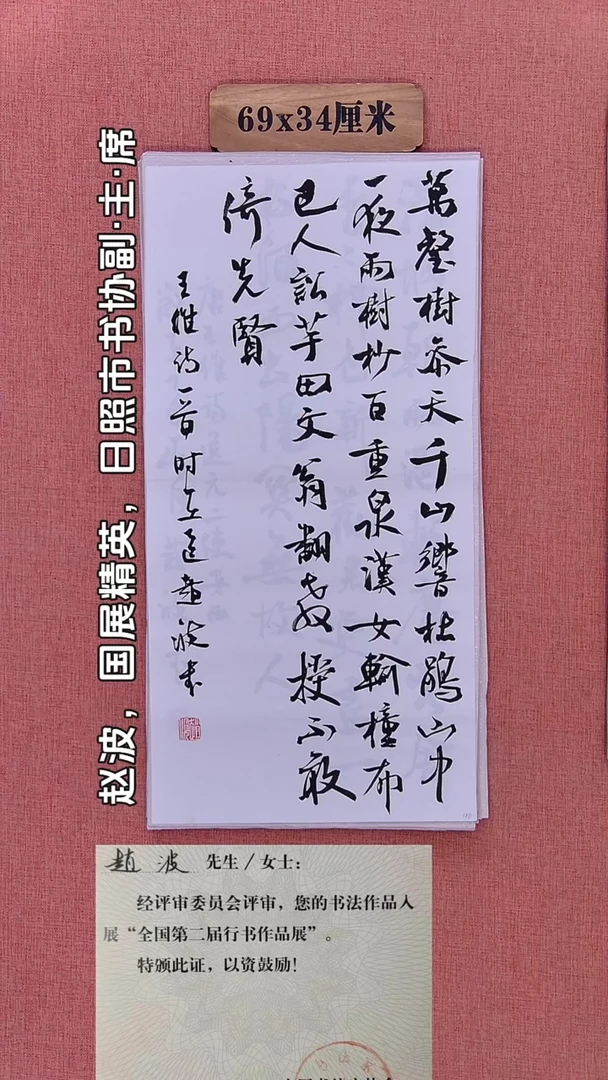 69x34厘米
赵波，国展精英，日照市书协副·主·席
萬壑樹參天千山響杜鵑山中
一夜雨樹杪百重泉漢女輸橦布
巴人訟芋田文翁翻教授不敢
倚先賢
王維詩一首时在趙波书
趙波 先生／女士：
经评审委员会评审，您的书法作品入
展“全国第二届行书作品展”。
特颁此证，以资鼓励！